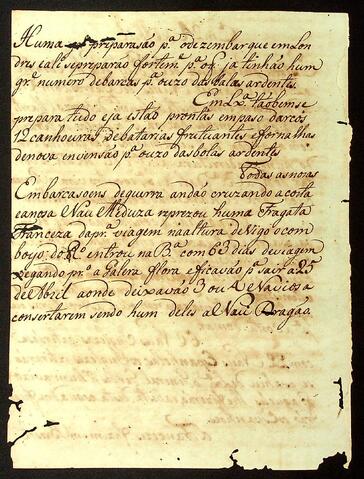 Huma preparasão pª odezembarque em Lon
dres e ali se preparão fortemte pª of. ja tinhão hum
gre numero debarcas pª ouzo das balas ardentes.
Em Lxª tãobem se
prepara tudo eja estão prontas em paso darcos
12 canhoneiras debatarias frutuantes e fornalhas
denova envensão pª ouzo das bolas ardentes
Todas as nosas
Embarcasoens deguerra andão cruzando a costa
eanosa Nau Meduza reprezou huma Fragata
Franceza da prª viagem na altura de Vigo o com
boyo do Rº entrou na Bª com 63 dias de viagem
pegando prº a Galera flora e ficavão pª sair a 25
de Abril aonde deixavão 3 ou 4 Navios a
consertarem sendo hum deles a Nau Dragão.